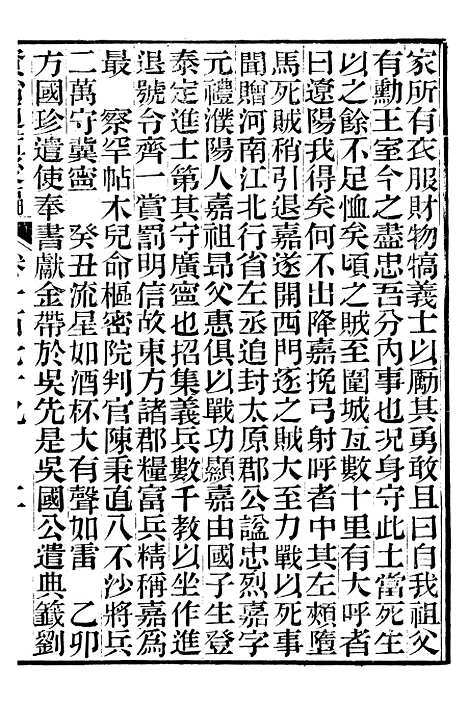 家所有衣服財物犒義士以厲其勇敢且曰自我祖父
有勳王室今之盡忠吾分內事也況身守此土當死生
以之餘不足恤矣頃之賊至圍城亙數十里有大呼者
曰遼陽我得矣何不出降嘉挽弓射呼者中其左頰墮
馬死賊稍引退嘉遂開西門逐之賊大至力戰以死事
聞贈河南江北行省左丞追封太原郡公諡忠烈嘉字
元禮濮陽人嘉祖昂父惠俱以戰功顯嘉由國子生登
泰定進士第其守廣寧也招集義兵數千教以坐作進
退號令齊一賞罰明信故東方諸郡糧富兵精稱嘉為
最　察罕帖木兒命樞密院判官陳秉直八不沙將兵
二萬守冀寧　癸丑流星如酒杯大有聲如雷　乙卯
方國珍遣使奉書獻金帶於吳先是吳國公遣典籤劉
資治通鑑